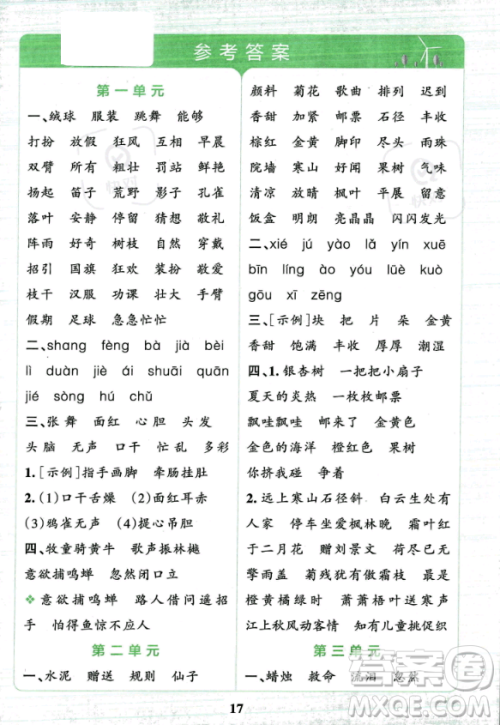 参考答案
第一单元
一、绒球 服装 跳舞 能够
打扮 放假 狂风 互相 早晨
双臂 所有 粗壮 罚站 鲜艳
扬起 笛子 荒野 影子 孔雀
落叶 安静 停留 猜想 飘扬
阵雨 好奇 树枝 突然 穿戴
招引 国旗 狂欢 装扮 敬爱
枝干 汉服 功课 壮大 手臂
假期 足球 急急忙忙
二、shang fèng bà jià bèi
lǐ duàn jiǎ sè yuè què
jié sòng hú chǔ
三、张 舞 面红 心胆 头发
头脑 无声 口干 忙乱 多彩
1.[示例]指手画脚 牵肠挂肚
2.(1)口干舌燥 (2)面红耳赤
(3)鸦雀无声 (4)提心吊胆
四、牧童骑黄牛 歌声振林樾
意欲捕鸣蝉 忽然闭口立
意欲捕鸣蝉 路人借问遥招
手 怕得鱼惊不应人
第二单元
一、水泥 赠送 规则 仙子
颜料 菊花 歌曲 排列 迟到
香甜 加紧 邮票 石径 丰收
棕红 金黄 脚印 尽头 傲霜
院墙 寒山 好闻 果树 气味
清凉 放晴 枫叶 平展 留意
饭盒 明朗 亮晶晶 闪闪发光
二、xié jú yào lǎ yìn xuē
bīn líng yán yóu lǜè kuò
gōu xī zēng
三、[示例]块 把 片 朵 金黄
香甜 飽饱 丰收 厚厚 潮湿
四、1.银杏树 一把把小扇子
夏天的炎热 一枚枚邮票
飘哇飘哇 邮来了 金黄色
金色的海洋 橙红色 果树
你挤我碰 争着
2.远上寒山石径斜 白云生处有
人家 停车坐爱枫林晚 霜叶红
于二月花 赠刘景文 荷尽已无
擎雨盖 菊残犹有傲霜枝 最是
橙黄橘绿时 萧萧梧叶送寒声
江上秋风动客情 知有儿童挑促织
第三单元
一、蜡烛 救命
17